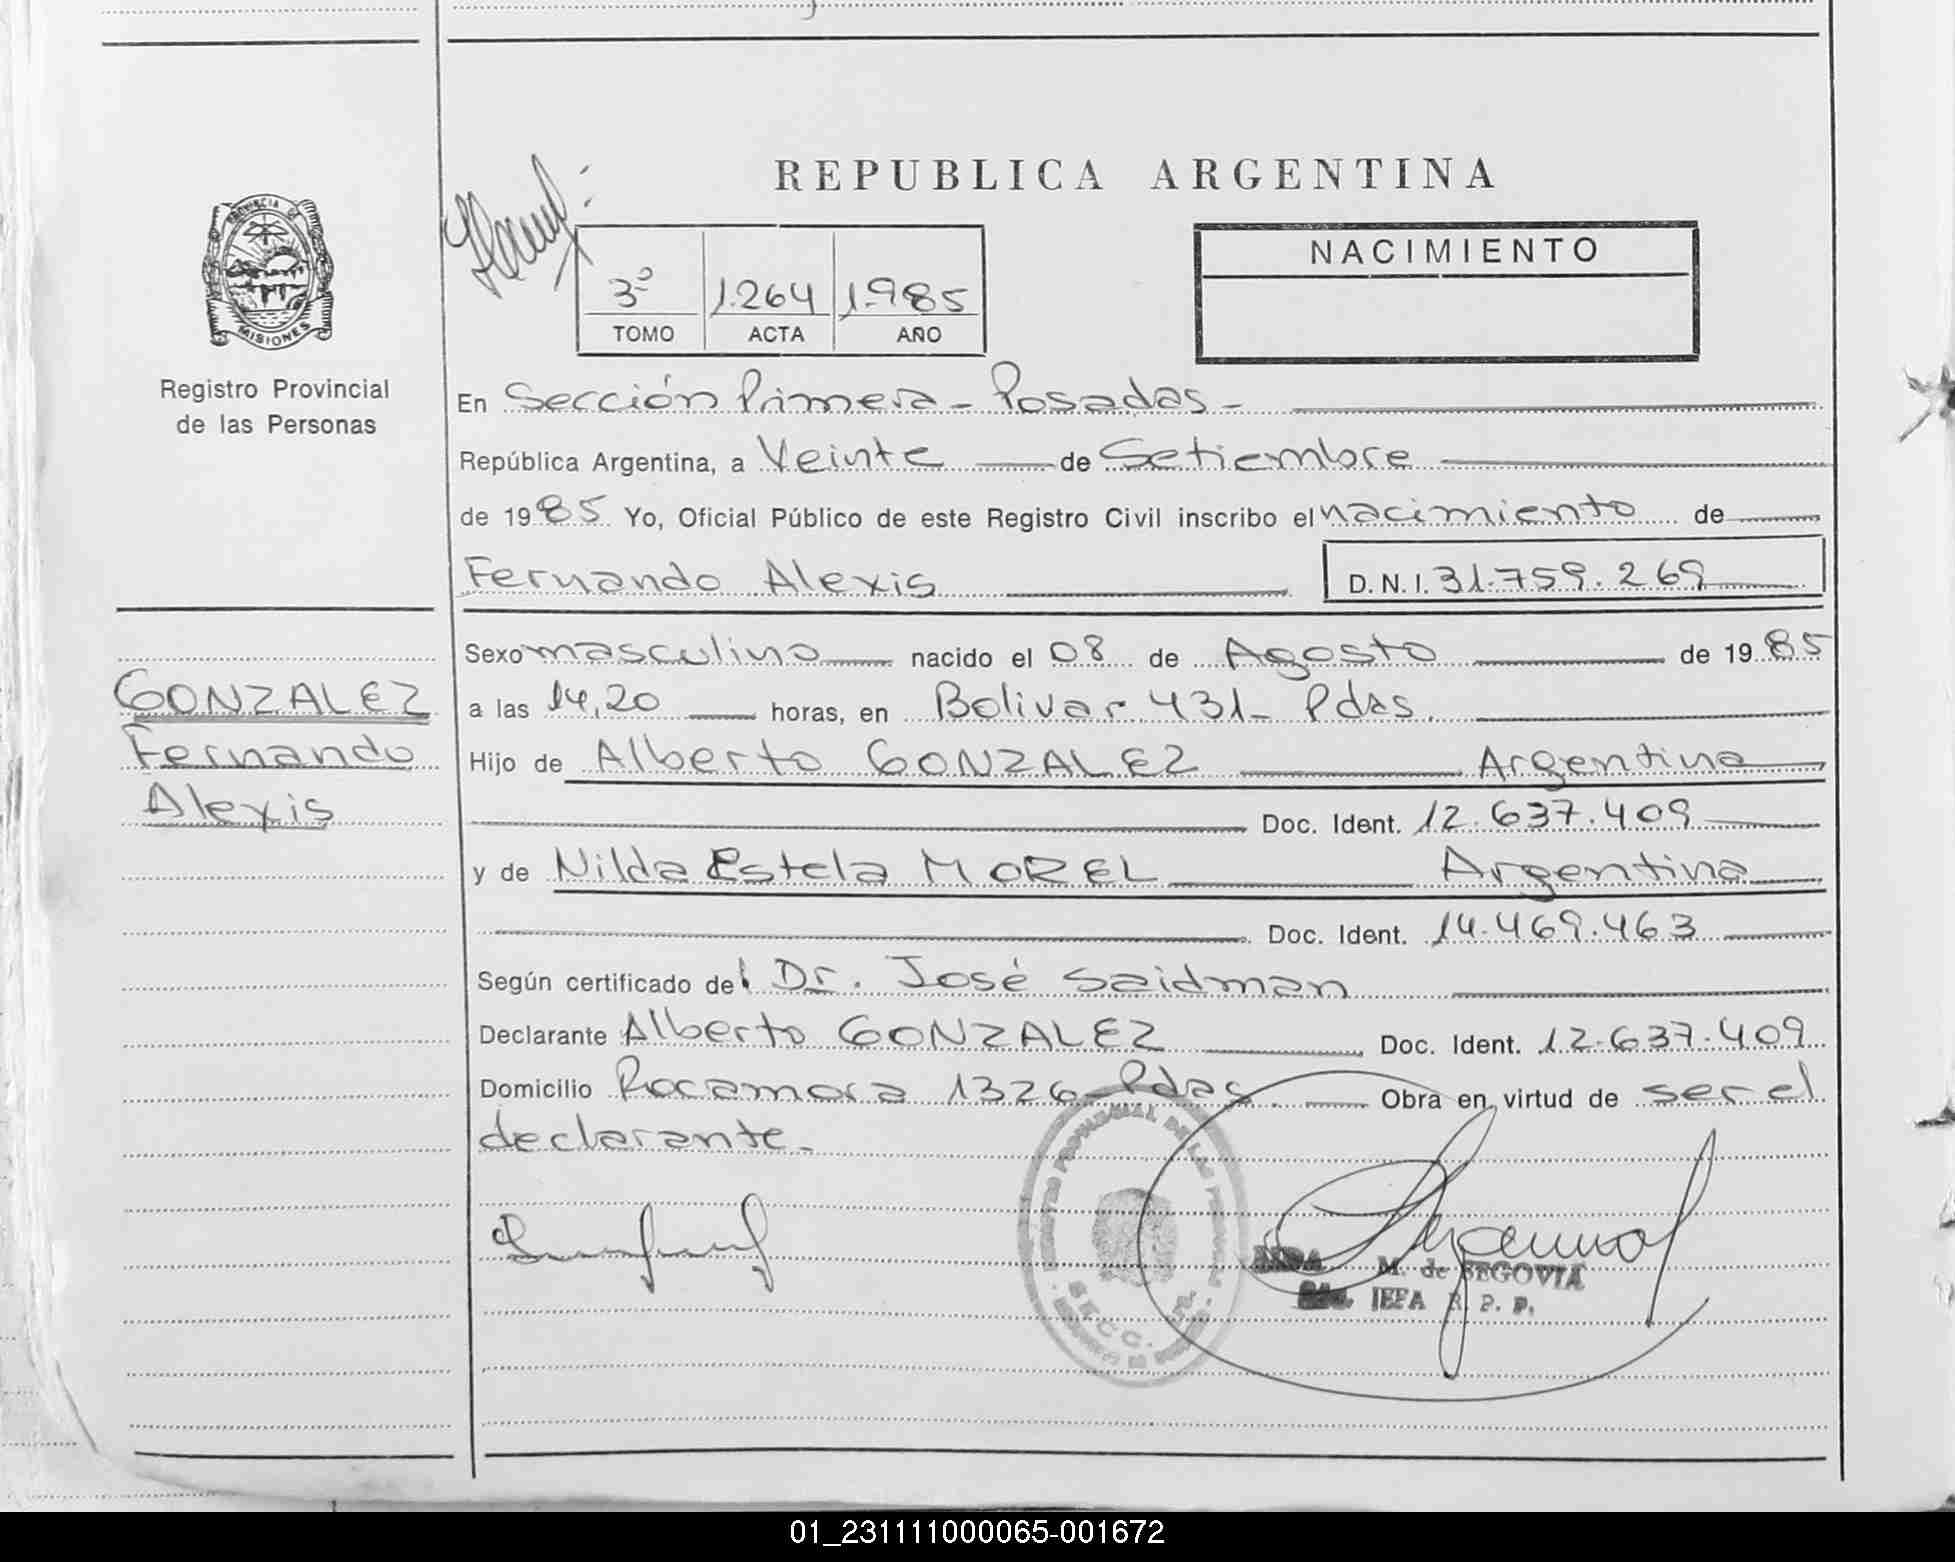 REPUBLICA ARGENTINA
PROVINCIA DE
MISIONES
Registro Provincial
de las Personas
NACIMIENTO
3º 1.264 1.985
TOMO ACTA AÑO
En Sección Primera - Posadas -
República Argentina, a Veinte de Setiembre
de 1985 Yo, Oficial Público de este Registro Civil inscribo el nacimiento de
Fernando Alexis D.N.I. 31.759.269
Sexo masculino nacido el 08 de Agosto de 1985
GONZALEZ
Fernando
Alexis
a las 14,20 horas, en Bolivar 431 - Pdas.
Hijo de Alberto GONZALEZ Argentina
Doc. Ident. 12.637.409
y de Nilda Estela MOREL Argentina
Doc. Ident. 14.469.463
Según certificado del Dr. José Saidman
Declarante Alberto GONZALEZ Doc. Ident. 12.637.409
Domicilio Rocamora 1326 Pdas. Obra en virtud de ser el
declarante.-
REGISTRO PROVINCIAL DE LAS PERSONAS
SECC. 1a.
M. de SEGOVIA
JEFA R. P. P.
01_231111000065-001672